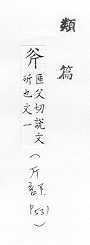 類篇
斧 匪父切說文
斫也文一
(斤部
P531)